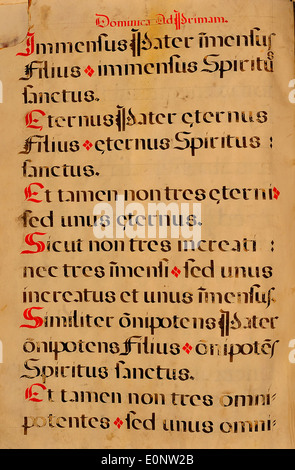 Dominica Ad Primam.
Immensus Pater im̃ensus
Filius immensus Spiritꝰ
sanctus.
Eternus Pater ęternus
Filius ęternus Spiritus :
sanctus.
Et tamen non tres ęterni
sed unus ęternus.
Sicut non tres increati :
nec tres im̃ensi sed unus
increatus et unus im̃ensus.
Similiter õnipotens Pater
õnipotens Filius õnipotẽs
Spiritus sanctus.
Et tamen non tres omni-
potentes sed unus omni-
alamy
E0NW2B
www.alamy.com